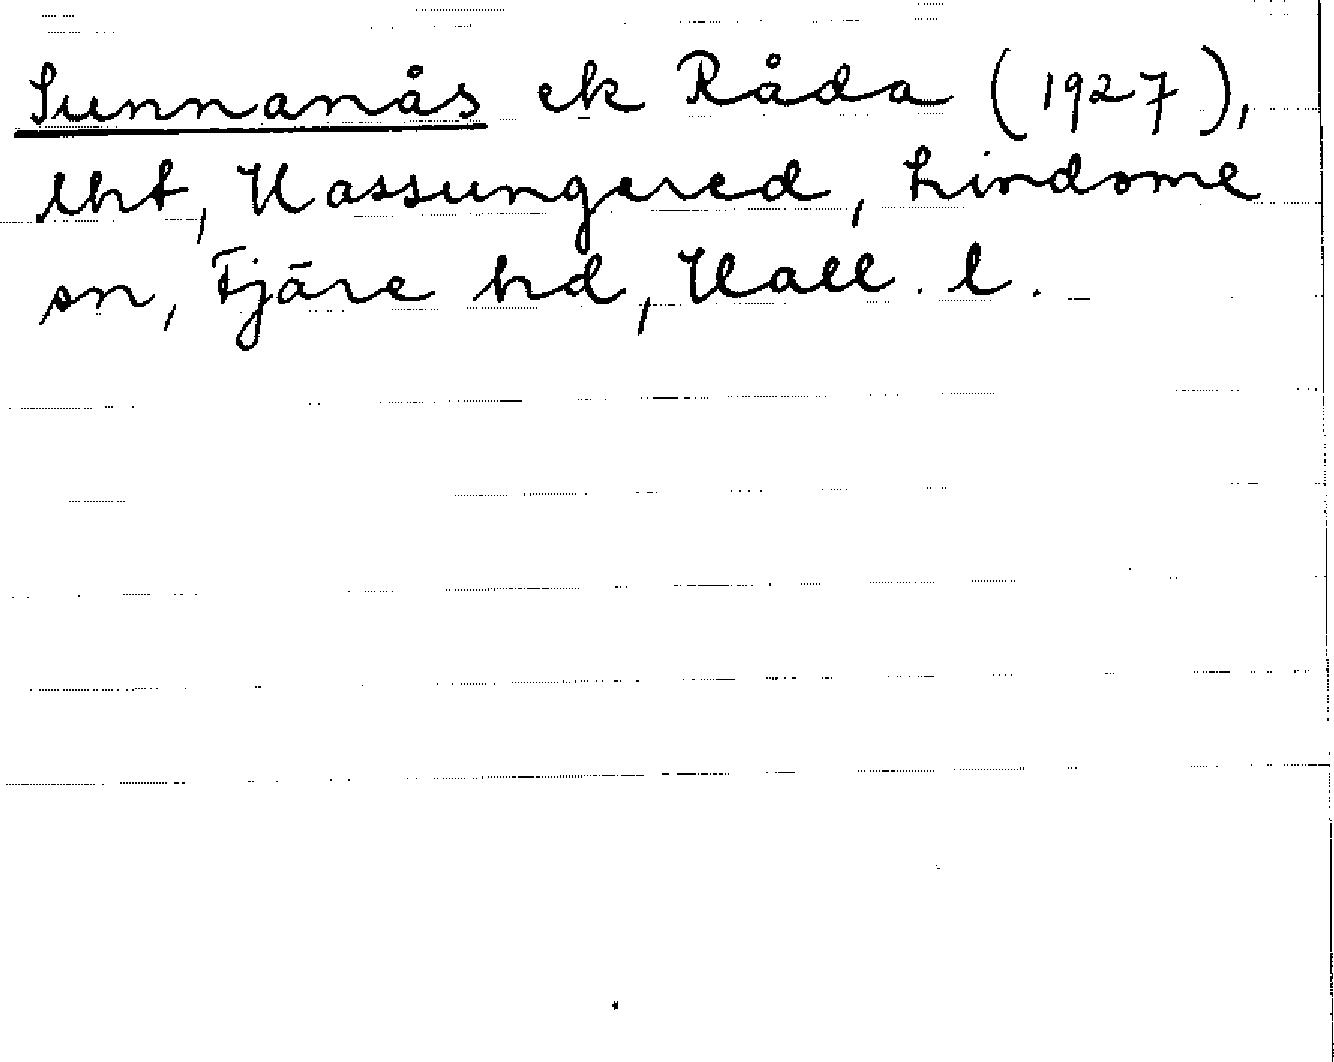 Sunnanås ek Råda (1927),
lht, Hassungared, Lindome
sn, Fjäre hd, Hall. l.